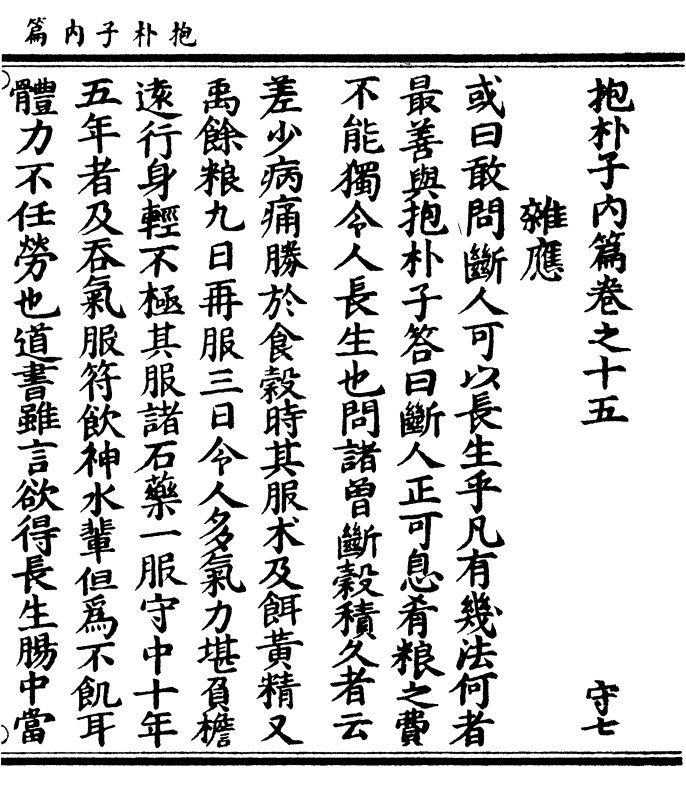 抱朴子內篇
抱朴子內篇卷之十五
守七
雜應
或曰敢問斷人可以長生乎凡有幾法何者
最善與抱朴子答曰斷人正可息肴粮之費
不能獨令人長生也問諸曾斷穀積久者云
差少病痛勝於食穀時其服朮及餌黃精又
禹餘粮九日再服三日令人多氣力堪負檐
遠行身輕不極其服諸石藥一服守中十年
五年者及吞氣服符飲神水輩但為不飢耳
體力不任勞也道書雖言欲得長生腸中當